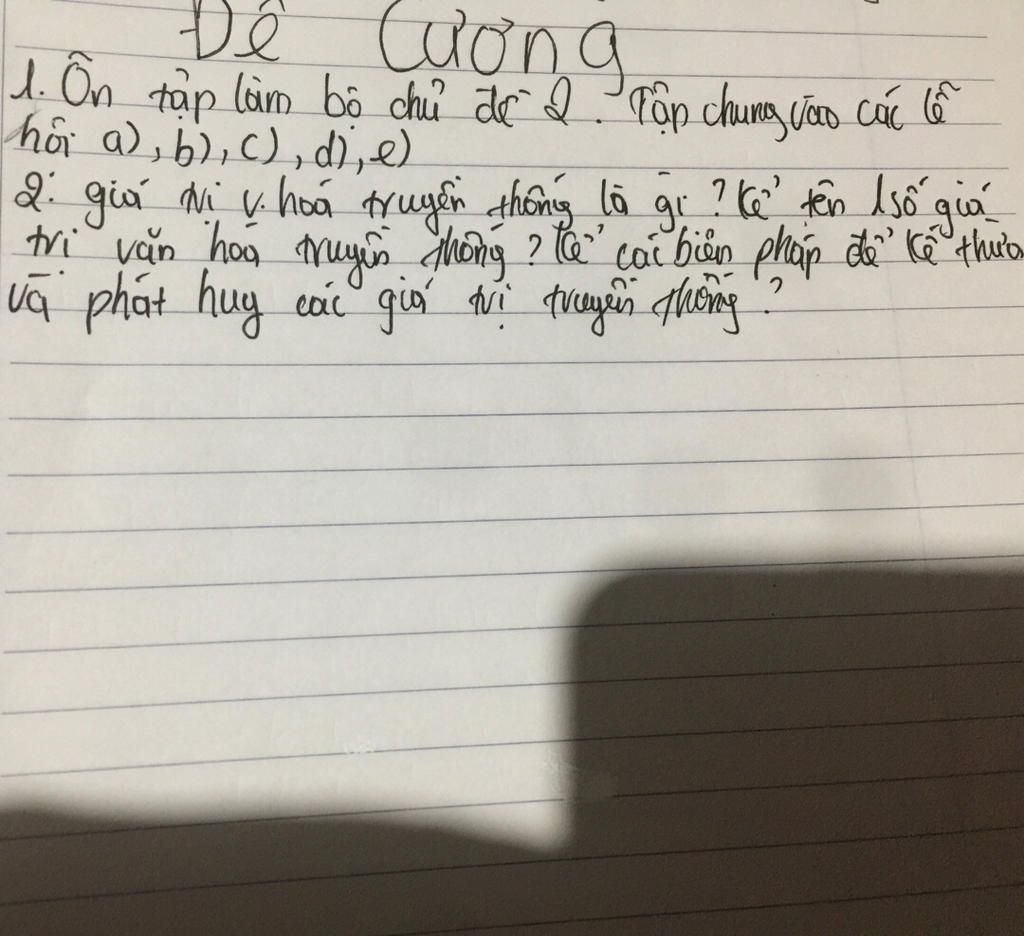 Đề Cương
1. Ôn tập làm bộ chủ đề 2. Tập chung vào các lễ
hội a), b), c), d), e)
2. giá trị v.hoá truyền thống là gì? Kể tên 1 số giá
trị văn hoá truyền thống? Kể các biện pháp để kế thừa
và phát huy các giá trị truyền thống?